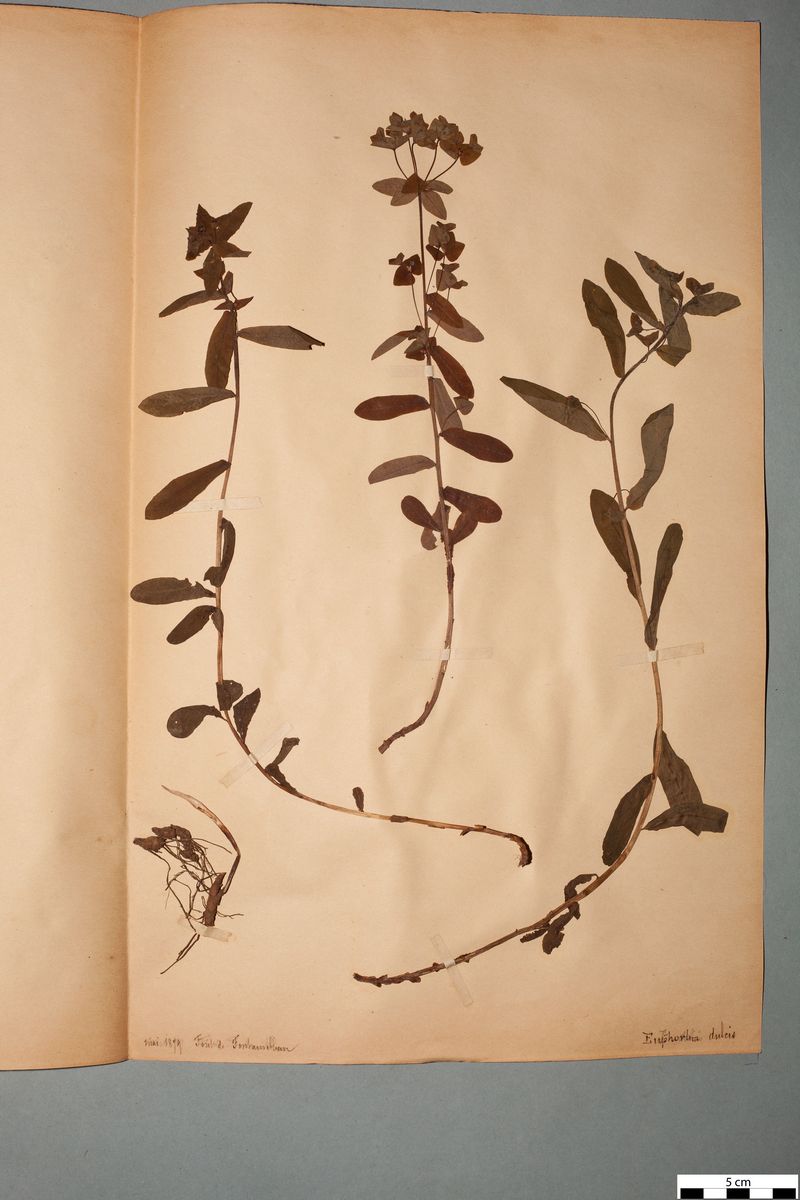 mai 1879 Forêt d. Fontainebleau
Euphorbia dulcis
5 cm